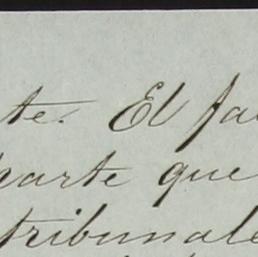 te. El fa
parte que
tribunale